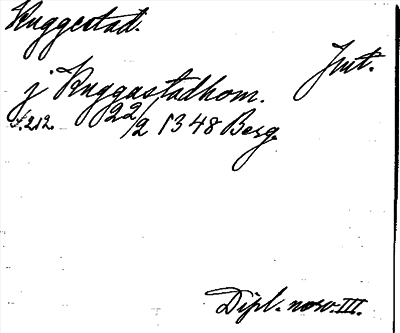 Ruggestad.
Jmt.
j Ruggastadhom.
S. 212. 22/2 1348 Berg
Dipl. norv. III.